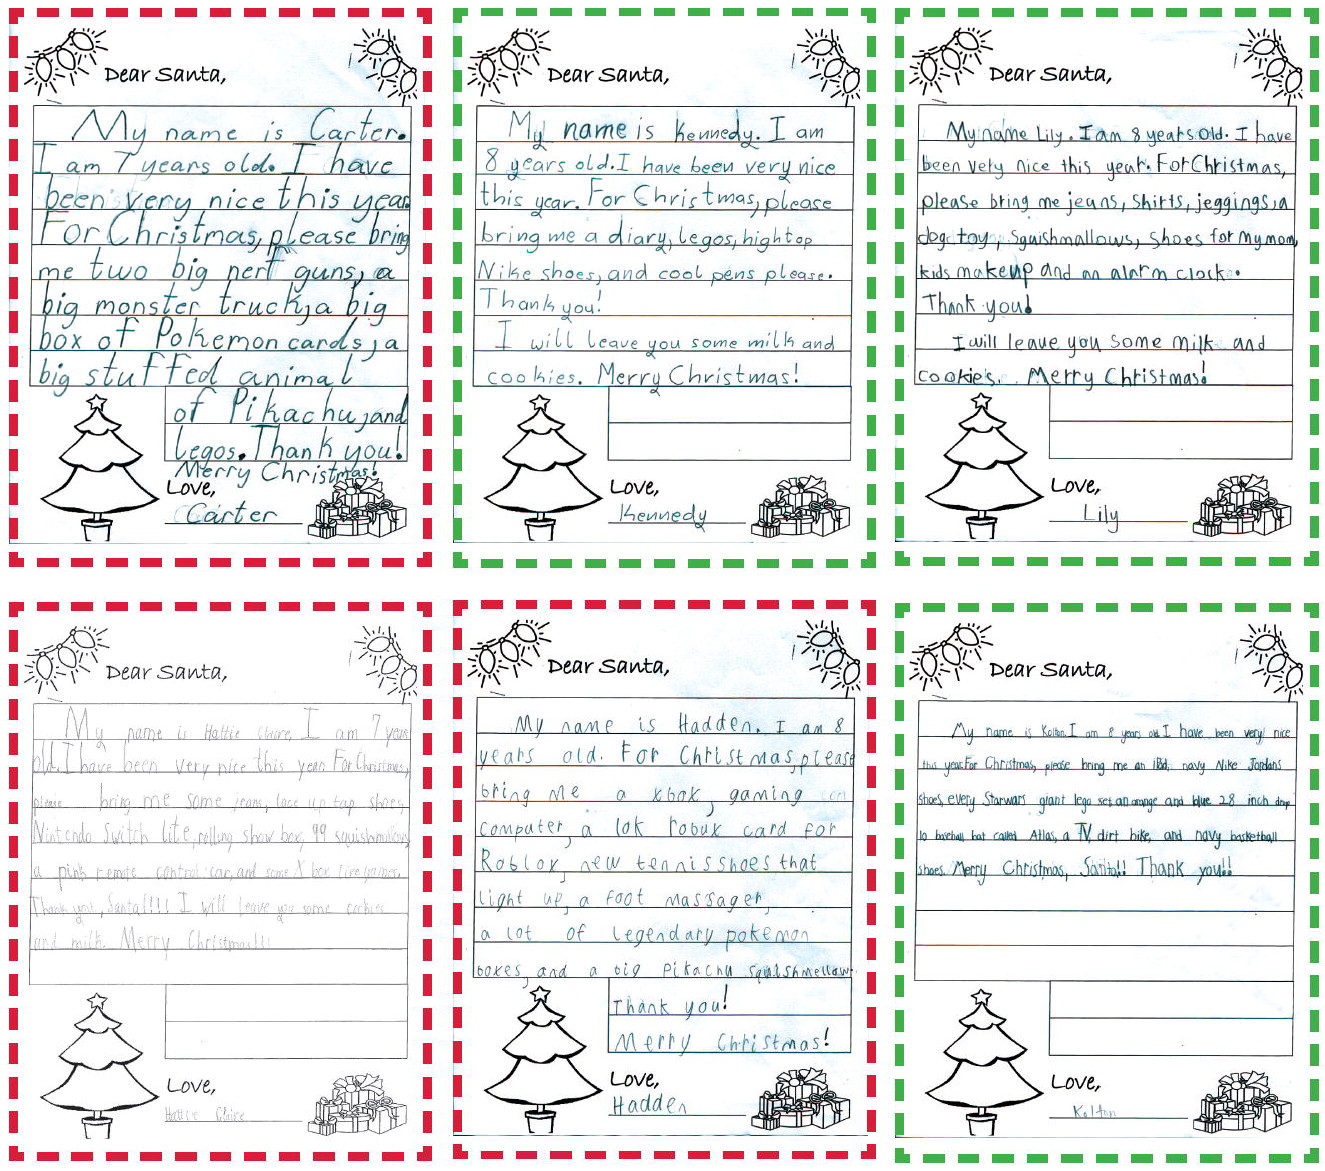 Dear Santa,
My name is Carter.
I am 7 years old. I have
been very nice this year.
For Christmas, please bring
me two big nerf guns, a
big monster truck, a big
box of Pokemon cards, a
big stuffed animal
of Pikachu, and
legos. Thank you!
Merry Christmas!
Love,
Carter
Dear Santa,
My name is Kennedy. I am
8 years old. I have been very nice
this year. For Christmas, please
bring me a diary, legos, hightop
Nike shoes, and cool pens please.
Thank you!
I will leave you some milk and
cookies. Merry Christmas!
Love,
Kennedy
Dear Santa,
My name Lily. I am 8 years old. I have
been very nice this year. For Christmas,
please bring me jeans, shirts, jeggings, a
dog toy, Squishmallows, shoes for my mom,
kids makeup and an alarm clock.
Thank you!
I will leave you some milk and
cookies. Merry Christmas!
Love,
Lily
Dear Santa,
My name is Hattie Claire. I am 7 years
old. I have been very nice this year. For Christmas,
please bring me some jeans, lace up tap shoes,
Nintendo Switch lite, rolling show box, 99 squishmallows,
a pink remote control car, and some X box
Thank you, Santa!!!! I will leave you some cookies
and milk. Merry Christmas!!!
Love,
Hattie Claire
Dear Santa,
My name is Hadden. I am 8
years old. For Christmas, please
bring me a xbox, gaming
computer, a 10k robux card for
Roblox, new tennis shoes that
light up, a foot massager,
a lot of legendary pokemon
boxes, and a big Pikachu squishmellow.
Thank you!
Merry Christmas!
Love,
Hadden
Dear Santa,
My name is Kolton. I am 8 years old. I have been very nice
this year. For Christmas, please bring me an iPad, navy Nike Jordans
shoes, every Starwars giant lego set, an orange and blue 28 inch drop
10 baseball bat called Atlas, a TV, dirt bike, and navy basketball
shoes. Merry Christmas, Santa!! Thank you!!
Love,
Kolton